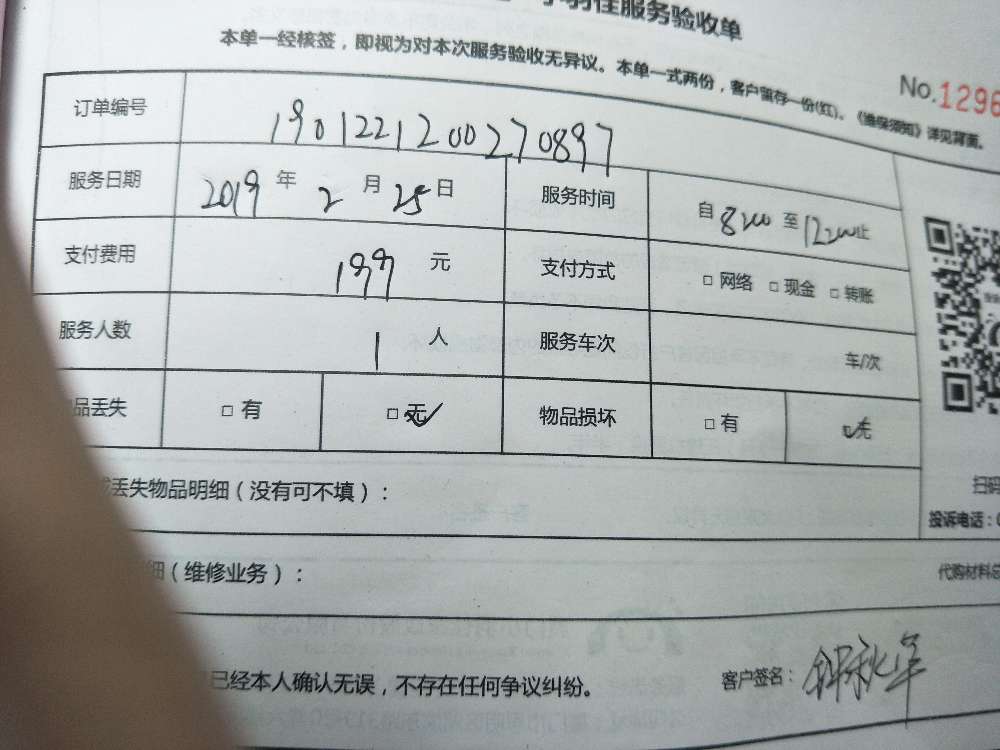 服务验收单
本单一经核签，即视为对本次服务验收无异议。本单一式两份，客户留存一份(红)。《维保须知》详见背面。
No.1296
订单编号 190122120027 0897
服务日期 2019 年 2 月 25 日 服务时间 自 8:00 至 12:00 止
支付费用 199 元 支付方式 □ 网络 □ 现金 □ 转账
服务人数 1 人 服务车次 车/次
品丢失 □ 有 □ 无 物品损坏 □ 有 □ 无
丢失物品明细（没有可不填）：
扫码
投诉电话：0
细（维修业务）：
代购材料总
已经本人确认无误，不存在任何争议纠纷。
客户签名： 钟秋华